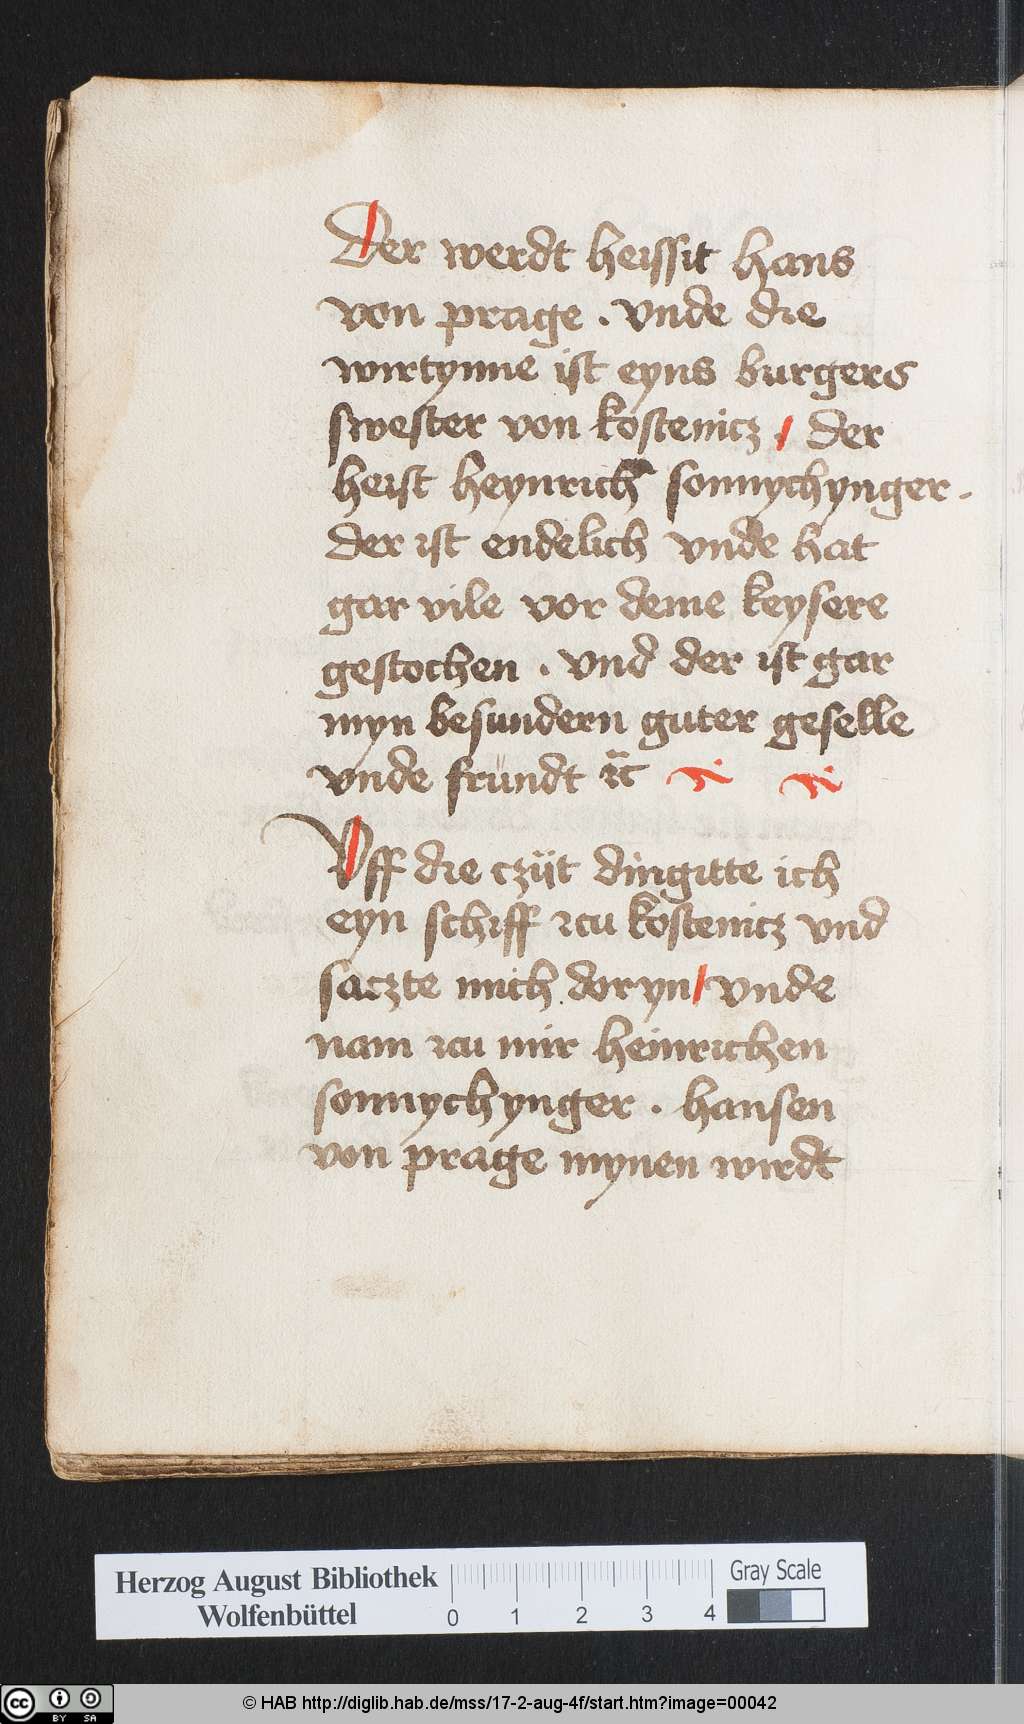 Der werdt heissit hans
von prage . vnde die
wirtynne ist eyns burgers
swester von kostenicz . der
heist heynrich sonnychynger .
der ist endelich vnde hat
gar vile vor deme keysere
gestochen . vnd der ist gar
myn besundern guter geselle
vnde fründt ꝛc̄
Vff die czijt dingitte ich
eyn schiff zcu kostenicz vnd
saczte mich doryn / vnde
nam zcu mir heinrichen
sonnychynger . hansen
von prage mynen wirdt
Herzog August Bibliothek
Wolfenbüttel
0 1 2 3 4
Gray Scale
cc BY SA
© HAB http://diglib.hab.de/mss/17-2-aug-4f/start.htm?image=00042